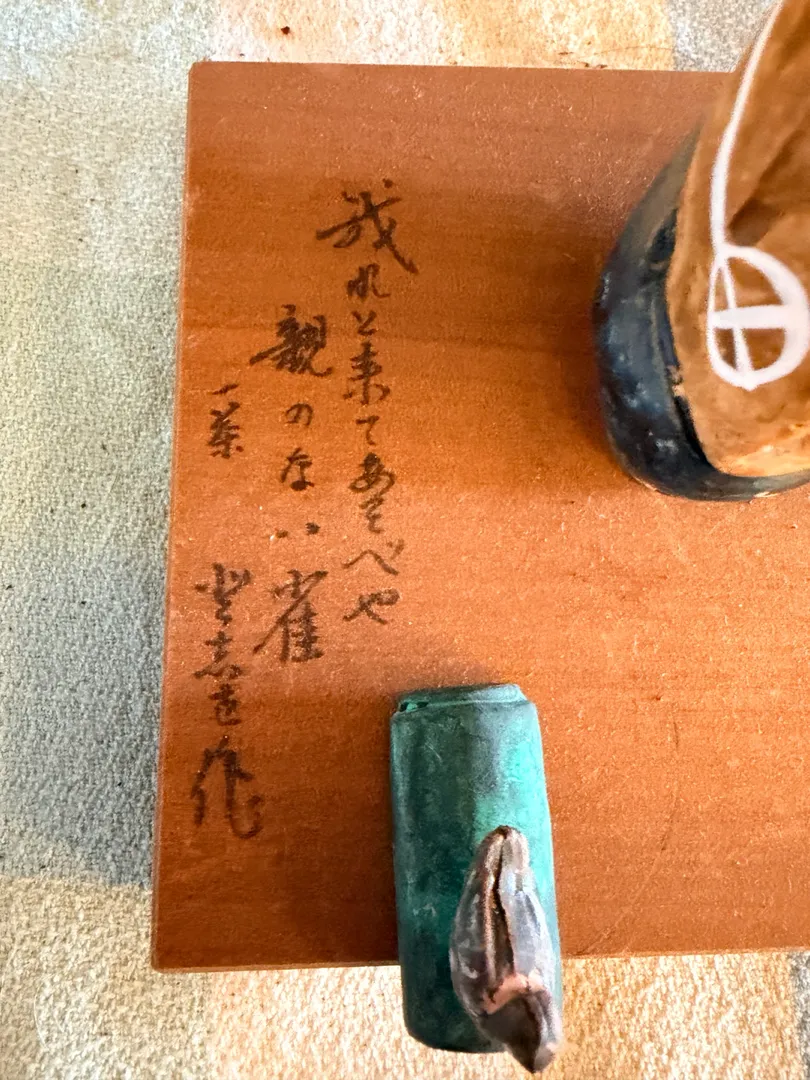 我れと来てあそべや
親のない雀
一茶
作